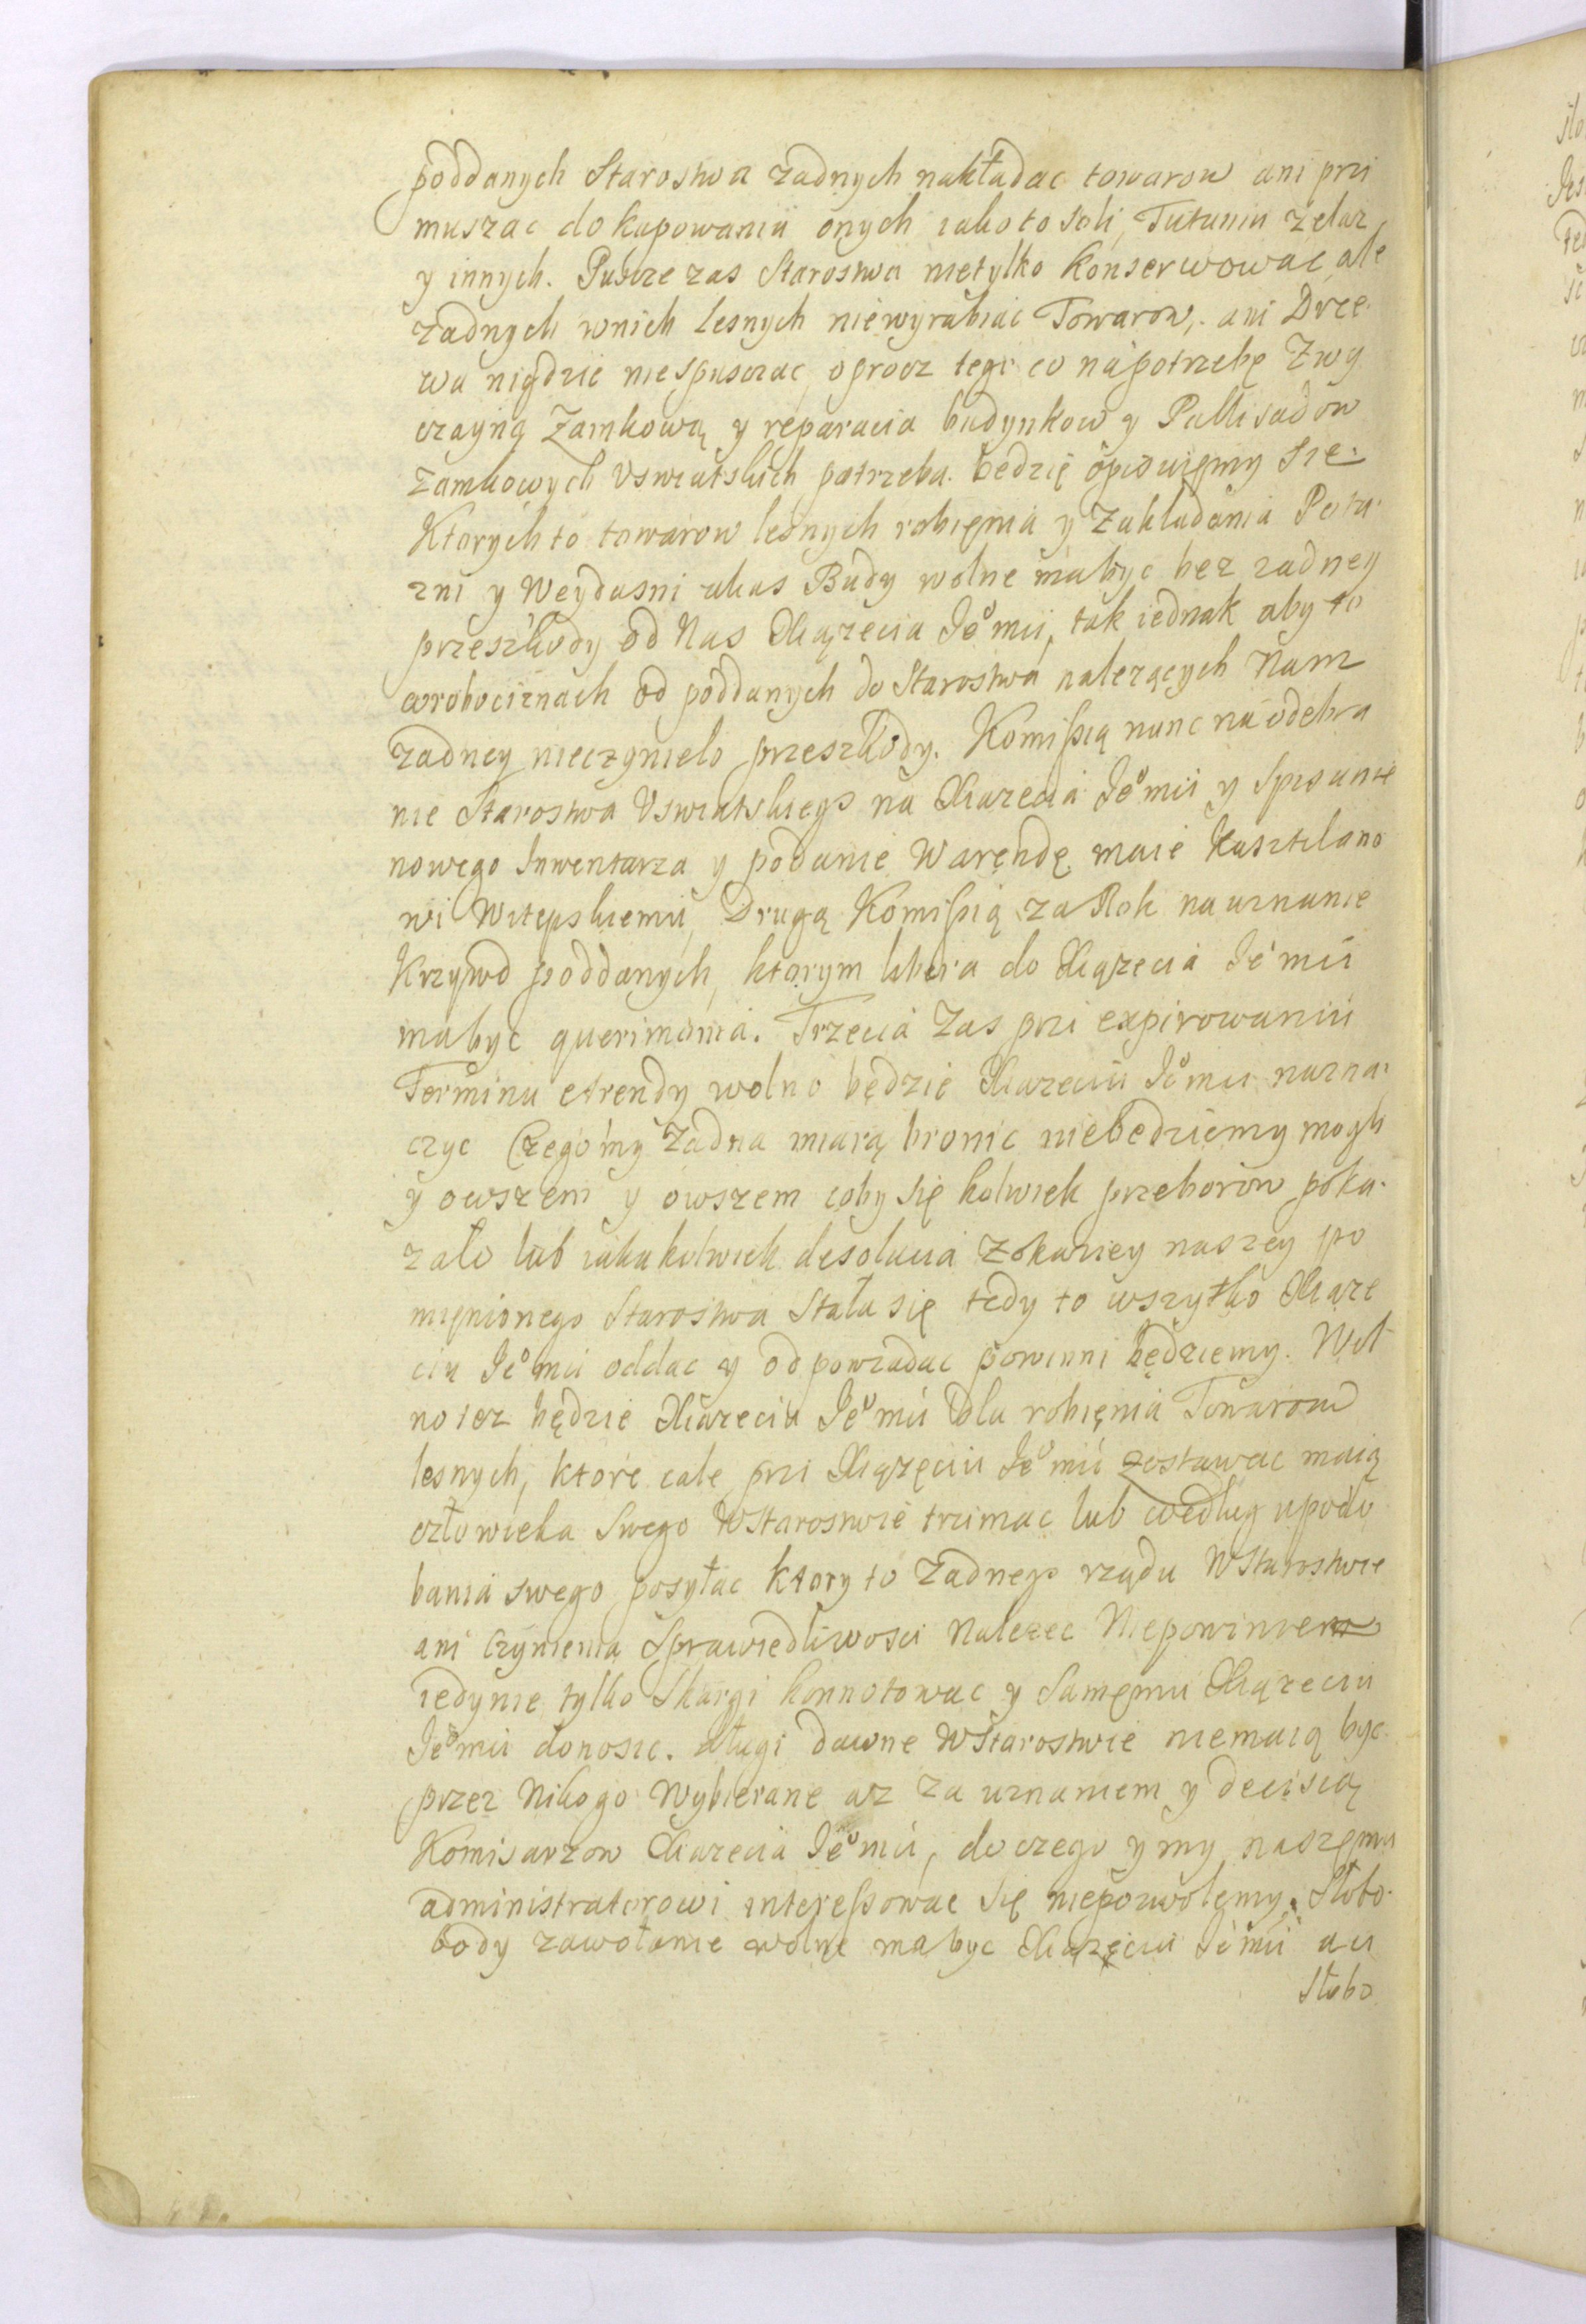 poddanych Starostwa zadnych nakładac towarow ani przi
muszac do kupowaniu onych iako to soli, Tutuniu żelaz
y innych. Puscze zas Starostwa nietylko konserwowac ale
zadnych wnich lesnych niewyrabiac Towarow, ani Drze
wa nigdzie niespusczac oprocz tego co na potrzebę Zwy
czayną Zamkową y reparacia budynkow y Pallisadow
Zamkowych Uswiatskich potrzeba będzie opisuięmy się.
Ktorych to towarow lesnych robięnia y Zakładania Pota
zni y Weydasni alias Budy wolne mabyc bez zadney
przeszkody od Nas Xiązecia Jeo mci, tak iednak aby to
wrobociznach od poddanych do Starostwa nalezących Nam
zadney nieczyniela przeszkody. Komissią nunc na odebra
nie Starostwa Uswiatskiego na Xiazecia Jeo mci y Spisanie
nowego Inwentarza y podanie Warendę maie Kasztelano
wi Witepskiemu, Drugą Komissią za Rok na uznanie
Krzywd poddanych, ktorym libera do Xiązecia Jeo mci
mabyc querimonia. Trzecia Zas przi expirowaniu
Terminu Arendy wolno będzie Xiazeciu Jeo mci nazna
czyc Czego my Zadna miarą bronic niebedziemy mogli
y owszem y owszem coby się kolwiek przeborow poka
zało lub iakakolwiek desolacia Zokaziey naszey po
mięnionego Starostwa Stała się tedy to wszytko Xiąze
ciu Jeo mci oddac y odpowiadac powinni będziemy. Wol
no iez będzie Xiazeciu Jeo mci dla robięnia Towarow
lesnych, ktore cale przi Xiązęciu Jeo mci zostawac maią
człowieka Swego WStarostwie trzimac lub według upodo
bania swego posyłac ktory to Zadnego rządu WStarostwie
ani czynienia Sprawiedliwosci Nalezec Niepowinien
iedynie tylko Skargi konnotowac y Samęmu Xiązeciu
Jeo mci donosic. długi dawne WStarostwie niemaią byc
przez Nikogo Wybierane az za uznaniem y decisią
Komisarzow Xiazecia Jeo mci, do czego y my naszęmu
administratorowi interessowac się niepozwolęmy. Słobo
body zawołanie wolne mabyc Xiązęciu Jeo mci a u
Słobo